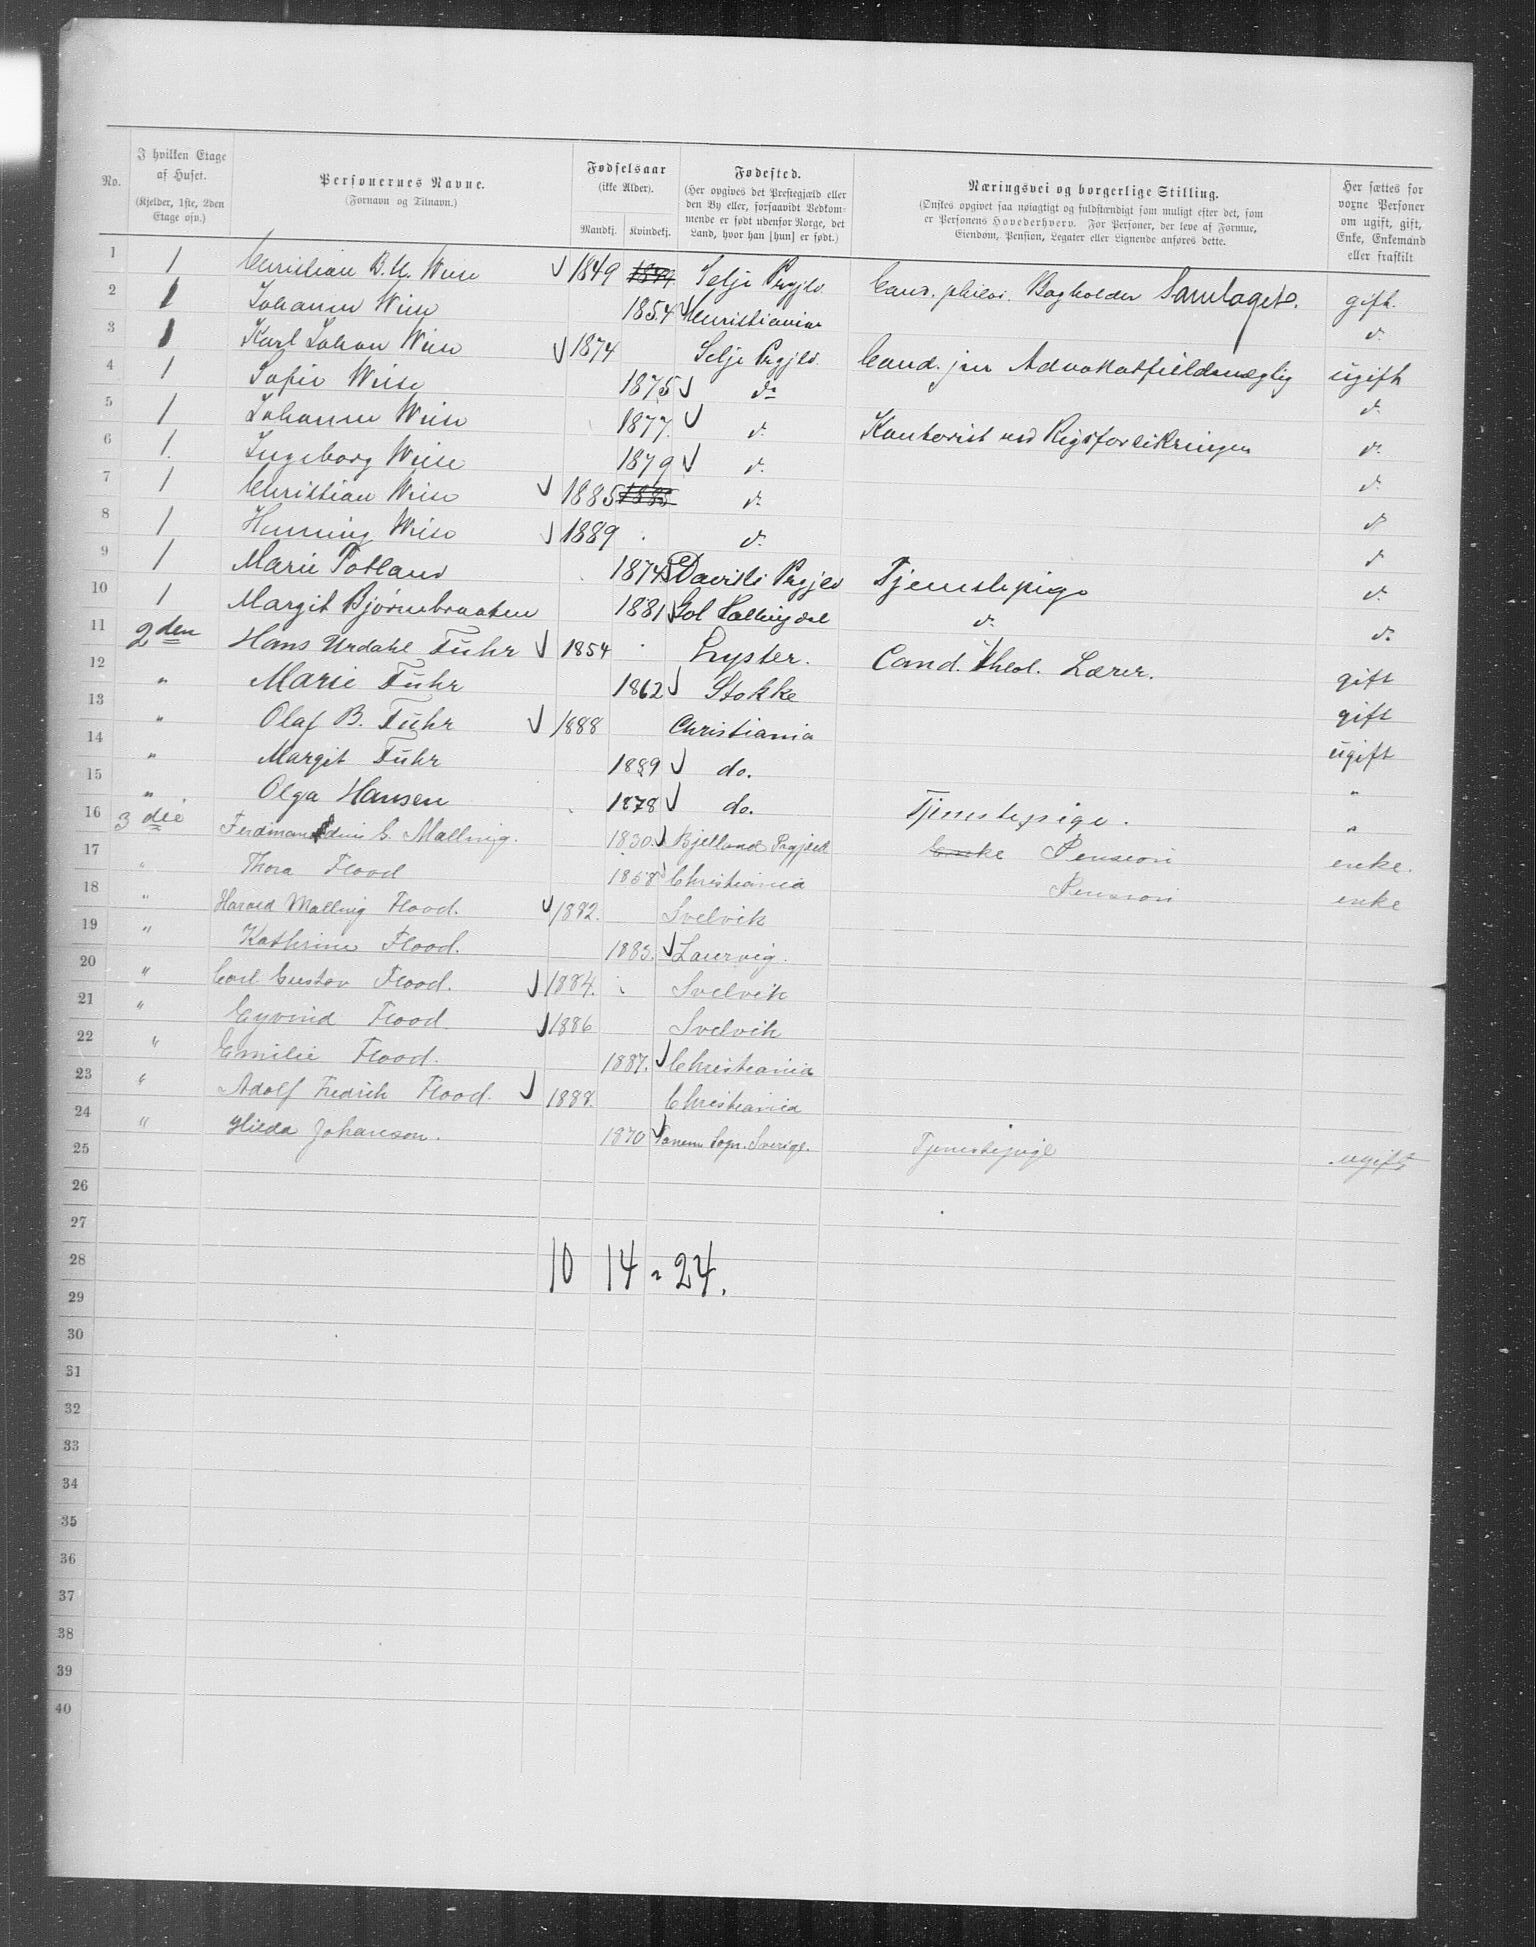 No. | I hvilken Etage af Huset. (Kjelder, 1ste, 2den Etage osv.) | Personernes Navne. (Fornavn og Tilnavn.) | Fødselsaar (ikke Alder). Mandkj. | Kvindekj. | Fødested. (Her opgives det Prestegjæld eller den By eller, forsaavidt Vedkommende er født udenfor Norge, det Land, hvor han [hun] er født.) | Næringsvei og borgerlige Stilling. (Ønskes opgivet saa nøiagtigt og fuldstændigt som muligt efter det, som er Personens Hovederhverv. For Personer, der leve af Formue, Eiendom, Pension, Legater eller Lignende anføres dette. | Her sættes for voxne Personer om ugift, gift, Enke, Enkemand eller fraskilt
1 1 Christian B. U. Wiese 1849 1849 Selje Prgjld. Cand. philos. Bogholder Samlaget. gift.
2 1 Johanne Wiese 1854 Christiania d.
3 1 Karl Johan Wiese 1874 Selje Prgjld. Cand. jur Advokatfuldmægtig ugift
4 1 Sofie Wiese 1875 do d.
5 1 Johanne Wiese 1877. d. Kontorist ved Rigsforsikringen d.
6 1. Ingeborg Wiese 1879 d. d.
7 1 Christian Wiese 1885 1885 d. d
8 1 Henning Wiese 1889 d. d
9 1 Marie Totland 1874 Daviks Prgjld Tjenestepige d.
10 1 Margit Bjørnebraaten 1881 Gol Hallingdal d. d.
11 2den Hans Urdahl Fuhr 1854 Lyster. Cand. Theol. Lærer. gift
12 " Marie Fuhr 1862 Stokke gift
13 " Olaf B. Fuhr 1888 Christiania ugift
14 " Margit Fuhr 1889 do. "
15 " Olga Hansen 1878 do. Tjenestepige. "
16 3die Ferdinandine G. Malling. 1830. Bjelland Prgjeld Enke Pension enke.
17 " Thora Flood 1858 Christiania Pension enke
18 " Harald Malling Flood. 1882. Svelvik
19 " Kathrine Flood. 1883. Laurvig.
20 " Carl Gustav Flood. 1884. Svelvik
21 " Eyvind Flood. 1886 Svelvik
22 " Emilie Flood. 1887. Christiania
23 " Adolf Fredrik Flood. 1888. Christiania
24 " Hilda Johanson. 1870 Sogn. Sverige. Tjenestepige ugift
25
26
27
28 10 14 = 24.
29
30
31
32
33
34
35
36
37
38
39
40